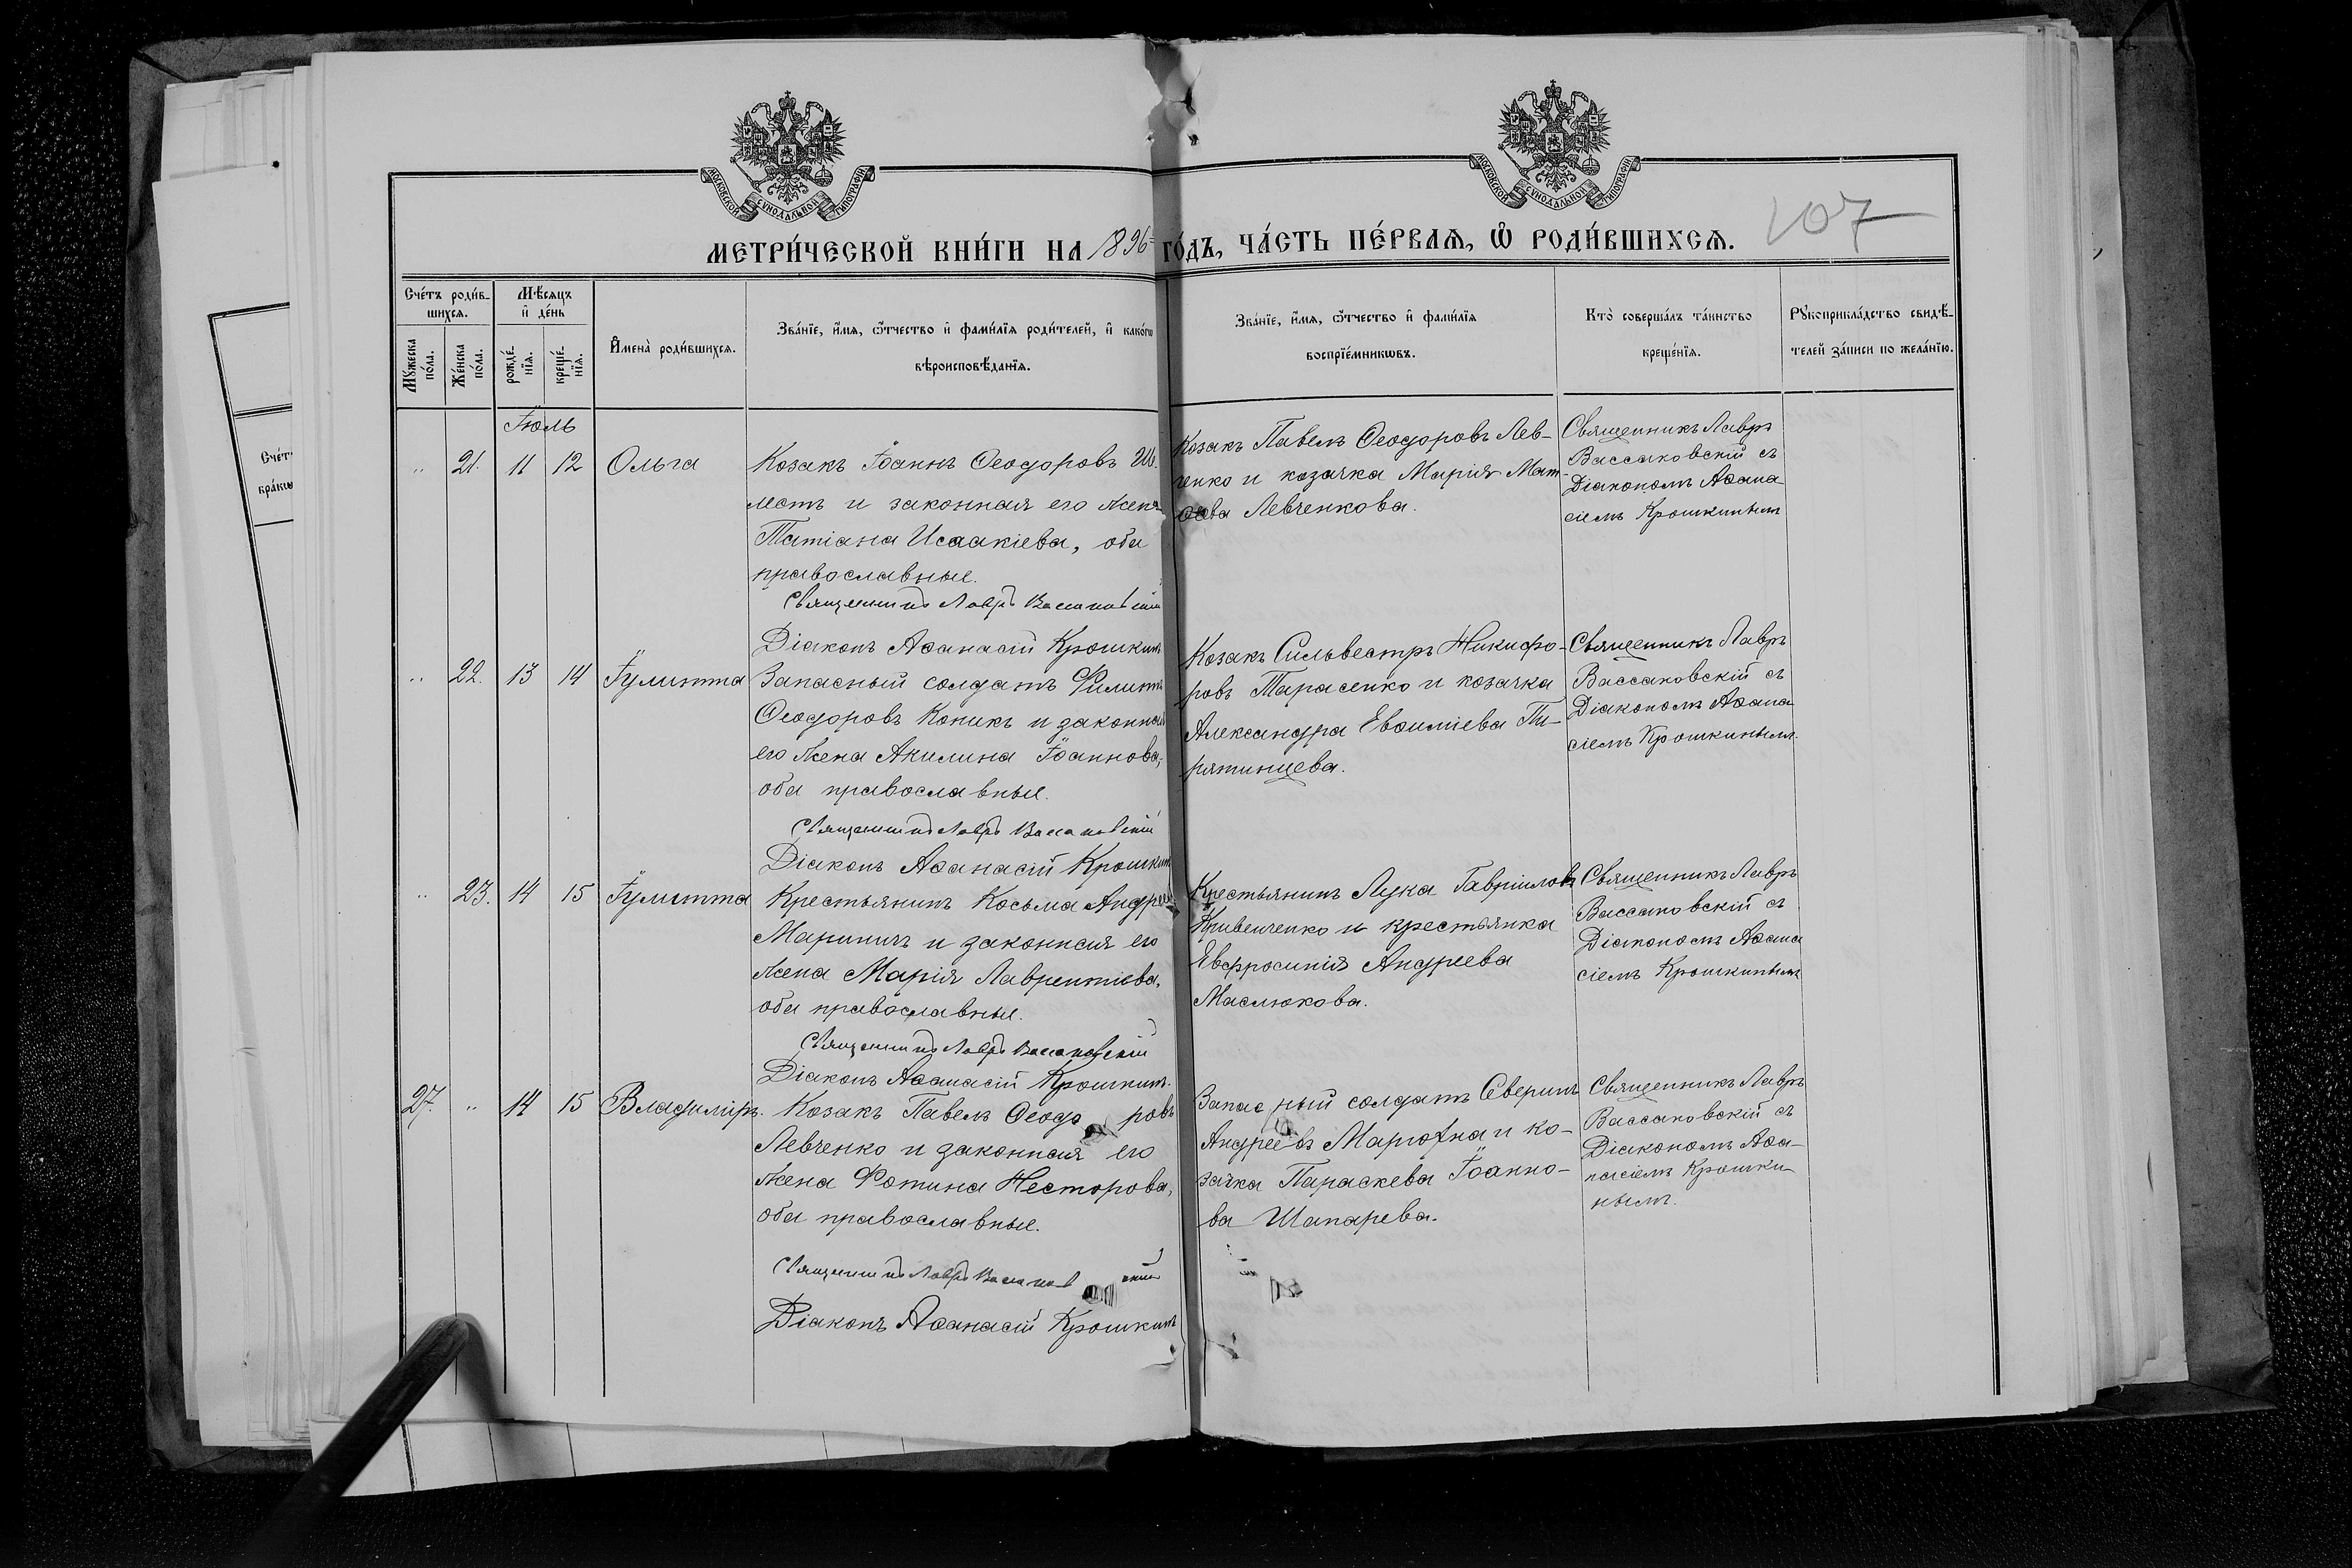 МОСКОВСКОЙ СУНОДАЛЬНОЙ ТИПОГРАФІИ
МОСКОВСКОЙ СУНОДАЛЬНОЙ ТИПОГРАФІИ
107
МЕТРИ́ЧЕСКОЙ КНИ́ГИ НА 1896 ГО́ДЪ, ЧА́СТЬ ПЕ́РВАѦ, Ѿ РОДИ́ВШИХСѦ.
Сче́тъ роди́в-
шихсѧ.
Мꙋжеска по́ла.
Же́нска по́ла.
Мѣ́сѧцъ и҆ де́нь
рожде́-
нїѧ.
креще́-
нїѧ.
И҆мена̀ роди́вшихсѧ.
Зва́нїе, и҆́мѧ, ѻ҆́тчество и҆ фами́лїѧ роди́телей, и҆ како́гѡ
вѣроисповѣ́данїѧ.
Зва́нїе, и҆́мѧ, ѻ҆́тчество и҆ фами́лїѧ
воспрїе́мникѡвъ.
Кто̀ соверша́лъ та́инство
креще́нїѧ.
Рꙋкоприкла́дство свидѣ́-
телей за́писи по жела́нїю.
Іюль
" 21. 11 12 Ольга
Козакъ Іоаннъ Ѳеодоровъ
местъ и законная его жена
Татіана Исаакіева, оба
православные.
Священникъ Лавръ Вассаковскій
Діаконъ Аѳанасій Крошкинъ
Козакъ Павелъ Ѳеодоровъ Лев-
ченко и козачка Марія Мат-
ѳеева Левченкова.
Священникъ Лавръ
Вассаковскій съ
Діакономъ Аѳана
сіемъ Крошкинымъ
" 22. 13 14 Іулитта
Запасный солдатъ Филиппъ
Ѳеодоровъ Коникъ и законная
его жена Акилина Іоаннова,
оба православные.
Священникъ Лавръ Вассаковскій
Діаконъ Аѳанасій Крошкинъ
Козакъ Сильвестръ Никифо-
ровъ Тарасенко и козачка
Александра Евѳиміева Пи-
рятинцева.
Священникъ Лавръ
Вассаковскій съ
Діакономъ Аѳана
сіемъ Крошкинымъ
" 23. 14 15 Іулитта
Крестьянинъ Косьма Андреевъ
Мариничъ и законная его
жена Марія Лаврентіева,
оба православные.
Священникъ Лавръ Вассаковскій
Діаконъ Аѳанасій Крошкинъ.
Крестьянинъ Лука Гавріиловъ
Кривенченко и крестьянка
Евфросинія Андреева
Маслюкова.
Священникъ Лавръ
Вассаковскій съ
Діакономъ Аѳана
сіемъ Крошкинымъ
27. " 14 15 Владиміръ.
Козакъ Павелъ Ѳеодоровъ
Левченко и законная его
жена Фотина Несторова,
оба православные.
Священникъ Лавръ Вассаковскій
Діаконъ Аѳанасій Крошкинъ
Запасный солдатъ Северинъ
Андреевъ и ко-
зачка Параскева Іоанно-
ва Шапарева.
Священникъ Лавръ
Вассаковскій съ
Діакономъ Аѳа-
насіемъ Крошки-
нымъ.
Сче́т
бра́кѡ